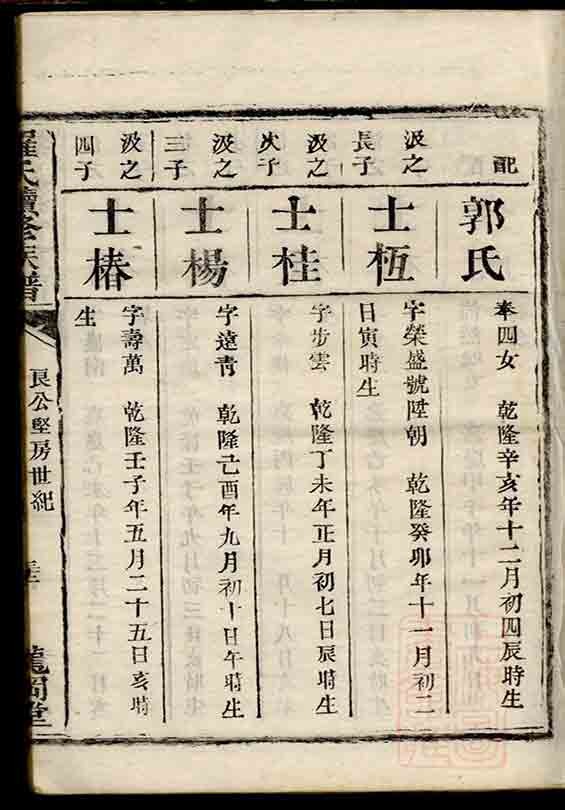 配
郭氏
奉四女 乾隆辛亥年十二月初四辰時生
汲之
長子
士恆
字榮盛號陞朝 乾隆癸卯年十一月初二
日寅時生
汲之
次子
士桂
字步雲 乾隆丁未年正月初七日辰時生
汲之
三子
士楊
字遠青 乾隆己酉年九月初十日午時生
汲之
四子
士椿
字壽萬 乾隆壬子年五月二十五日亥時
生
羅氏續修族譜
良公堅房世紀